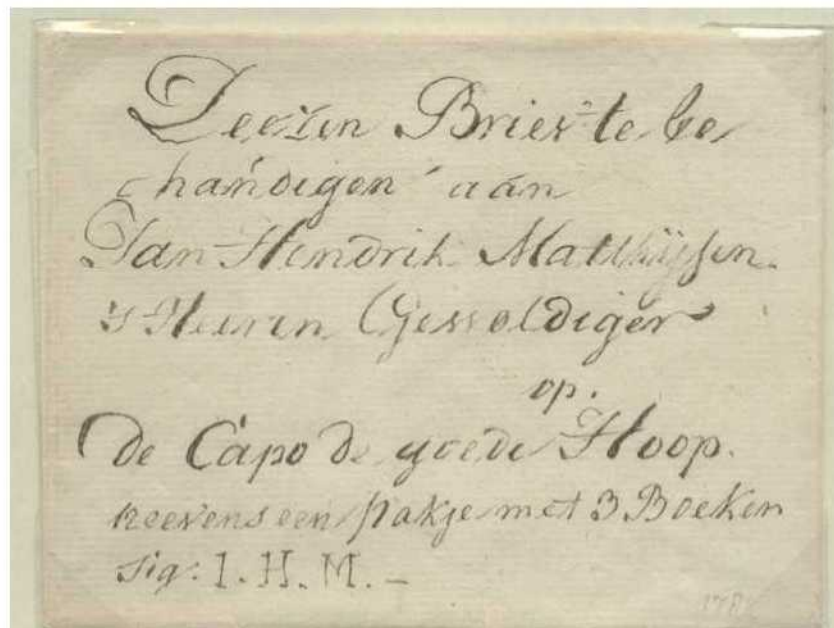 Deezen Brief te be
handigen aan
Jan Hendrik Matthijsen.
's Heeren Geweldiger
op.
de Capo de goede Hoop.
neevens een pakje met 3 Boeken
sig: I. H. M. –